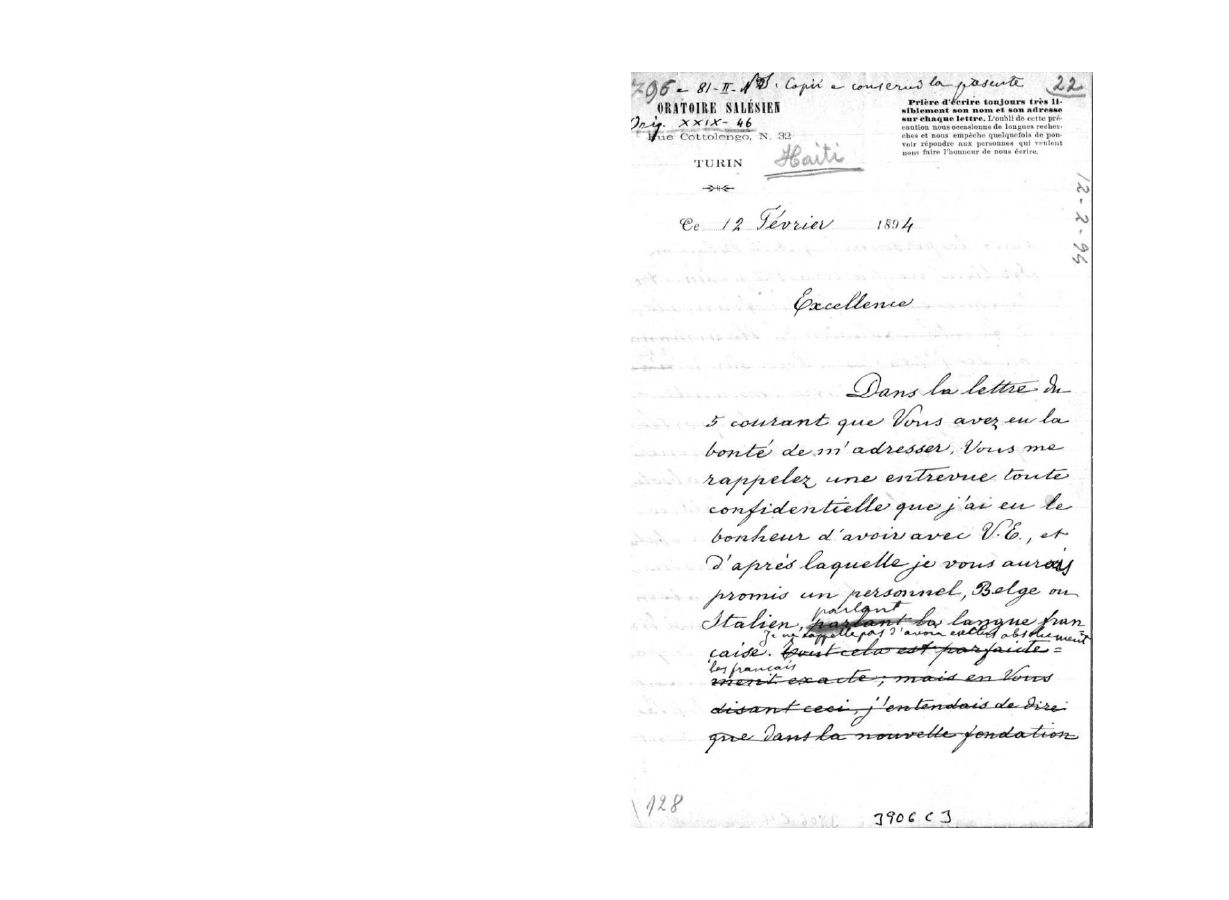 796 - 81-II- Copie e conserva la presente 22
ORATOIRE SALÉSIEN
Orig. XXIX-46
Rue Cottolengo, N. 32
TURIN
Haïti
Prière d'écrire toujours très li-
siblement son nom et son adresse
sur chaque lettre. L'oubli de cette pré-
caution nous occasionne de longues recher-
ches et nous empêche quelquefois de pou-
voir répondre aux personnes qui veulent
nous faire l'honneur de nous écrire.
12-2-94
Ce 12 Février 1894
Excellence
Dans la lettre du
5 courant que Vous avez eu la
bonté de m'adresser, Vous me
rappelez une entrevue toute
confidentielle que j'ai eu le
bonheur d'avoir avec V.E., et
d'après laquelle je vous aurais
promis un personnel, Belge ou
parlant
Italien, parlant la langue fran
Je ne rappelle pas d'avoir exclus absolument
çaise. Tout cela est parfaite=
les français
ment exacte; mais en Vous
disant ceci, j'entendais de dire
que dans la nouvelle fondation
128
3906 C 3